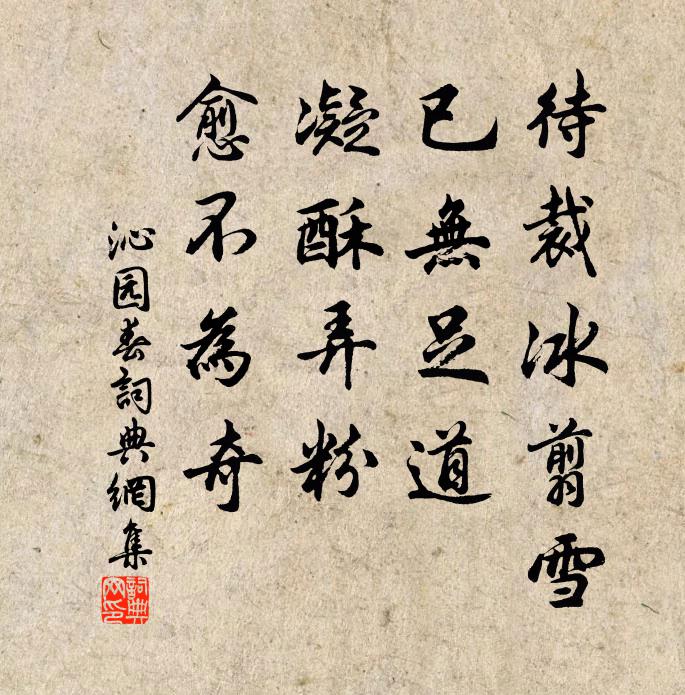 待裁冰翦雪
已無足道
凝酥弄粉
愈不為奇
沁园春詞典網集
詞典网印